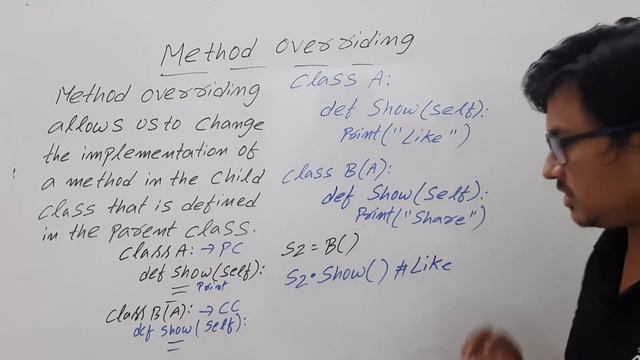 Method overriding
Method overriding
allows us to change
the implementation of
a method in the child
class that is defined
in the parent class.
class A: → PC
def show(self):
Print
class B(A): → CC
def show(self):
class A:
def Show(self):
Print("Like")
class B(A):
def Show(self):
Print("Share")
S2 = B()
S2.Show() #Like